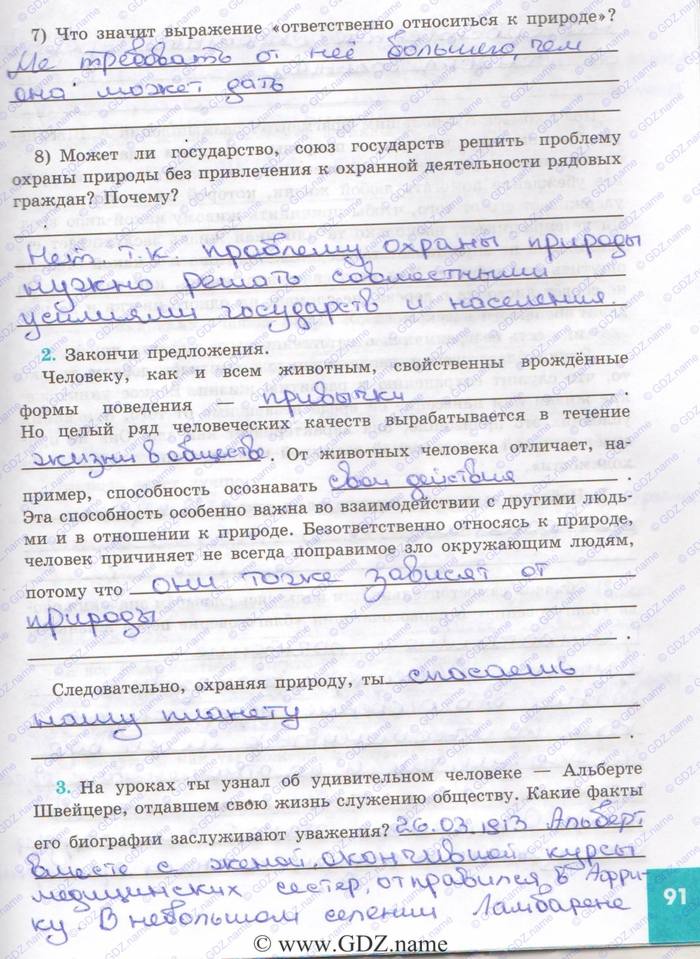 7) Что значит выражение «ответственно относиться к природе»?
Не требовать от неё большего, чем
она может дать
8) Может ли государство, союз государств решить проблему
охраны природы без привлечения к охранной деятельности рядовых
граждан? Почему?
Нет, т.к. проблему охраны природы
нужно решать совместными
усилиями государств и населения.
2. Закончи предложения.
Человеку, как и всем животным, свойственны врождённые
формы поведения — привычки.
Но целый ряд человеческих качеств вырабатывается в течение
жизни в обществе. От животных человека отличает, на-
пример, способность осознавать свои действия.
Эта способность особенно важна во взаимодействии с другими людь-
ми и в отношении к природе. Безответственно относясь к природе,
человек причиняет не всегда поправимое зло окружающим людям,
потому что они тоже зависят от
природы.
Следовательно, охраняя природу, ты спасаешь
нашу планету.
3. На уроках ты узнал об удивительном человеке — Альберте
Швейцере, отдавшем свою жизнь служению обществу. Какие факты
его биографии заслуживают уважения? 26.03.1913 Альберт
вместе с женой, окончившей курсы
медицинских сестер, отправился в Афри-
ку. В небольшом селении Ламбарене
91
© www.GDZ.name